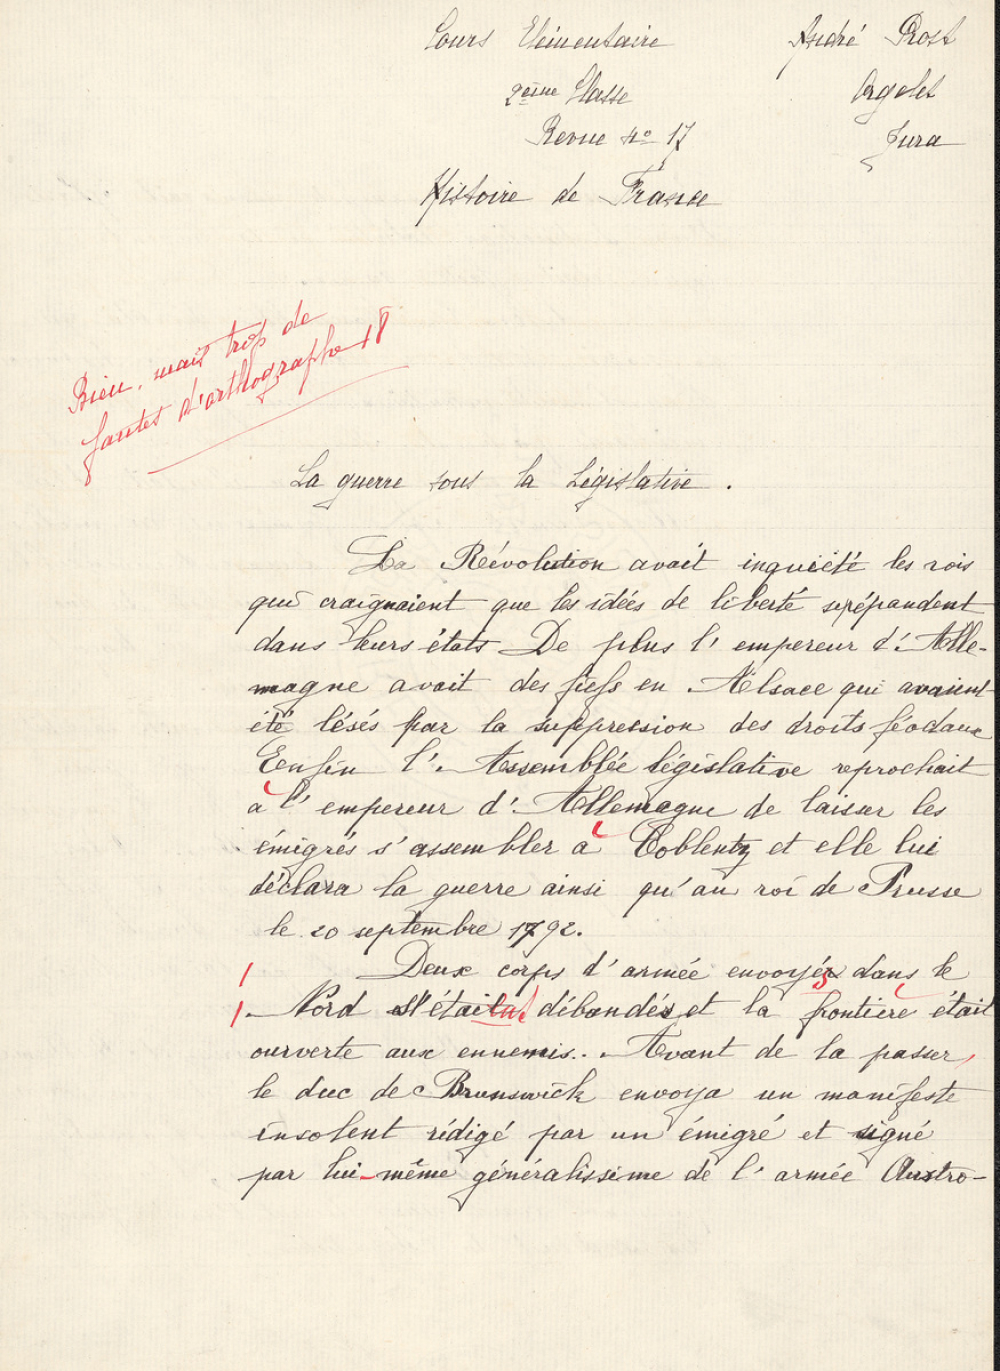 Cours Elémentaire
André Prost
2ème Classe
Orgelet
Revue No 17
Jura
Histoire de France
Bien, mais trop de
fautes d'orthographe 18
La guerre sous la Législative.
La Révolution avait inquiété les rois
qui craignaient que les idées de liberté se répandent
dans leurs états De plus l'empereur d'Alle-
magne avait des fiefs en Alsace qui avaient
été lésés par la suppression des droits féodaux
Enfin l'Assemblée législative reprochait
à l'empereur d'Allemagne de laisser les
émigrés s'assembler à Coblentz et elle lui
déclara la guerre ainsi qu'au roi de Prusse
le 20 septembre 1792.
Deux corps d'armée envoyés dans le
Nord s'étaient débandés et la frontière était
ourverte aux ennemis. Avant de la passer,
le duc de Brunswick envoya un manifeste
insolent rédigé par un émigré et signé
par lui-même généralissime de l'armée Austro-